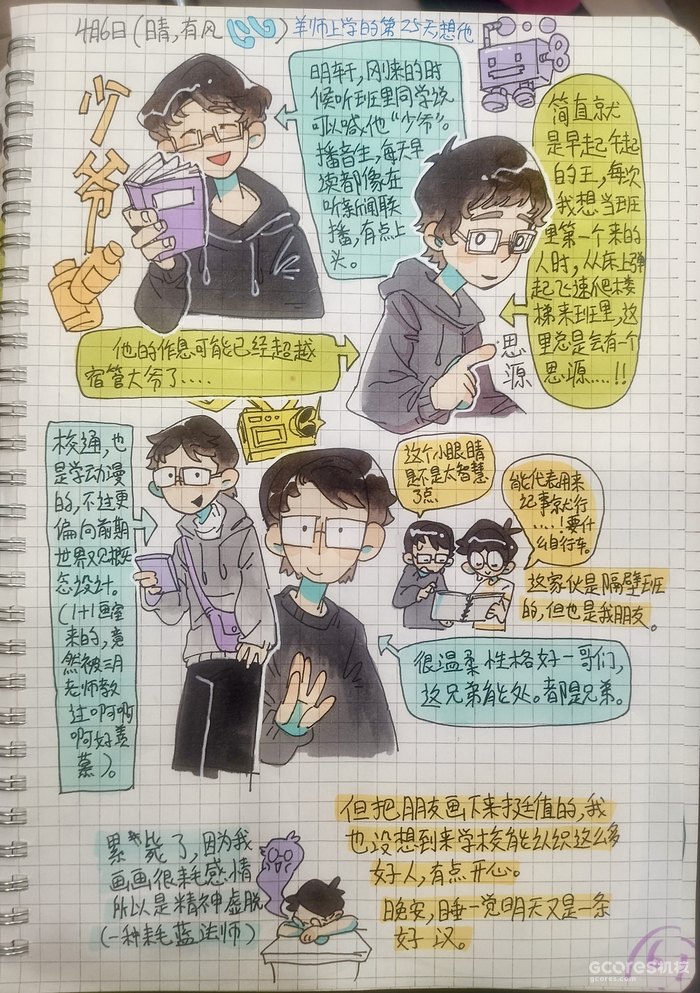 4月6日(晴,有风
)羊师上学的第25天想他
少爷
明轩,刚来的时
候听班里同学说
可以喊他“少爷”。
播音生,每天早
读都像在
听新闻联
播,有点上
头。
简直就
是早起午起
的王,每次
我想当班
里第一个来的
人时,从床上弹
起飞速爬楼
梯来班里,这
里总是会有一个
思源....!!
思源
他的作息可能已经超越
宿管大爷了....
校通,也
是学动漫
的,不过更
偏向前期
世界观概
念设计。
(1+1画室
来的,竟
然被三月
老师教
过啊啊啊
啊好羡
慕)。
这个小眼睛
是不是太智慧
了点
能代表用来
记事就行
.....!要什
么自行车。
这家伙是隔壁班
的,但也是我朋友。
很温柔性格好一哥们,
这兄弟能处。都是兄弟。
累死了,因为我
画画很耗感情
所以是精神虚脱
(一种耗蓝法师)
但把朋友画下来挺值的,我
也没想到来学校能认识这么多
好人,有点开心。
晚安,睡一觉明天又是一条
好汉。
GCORES机核
gcores.com